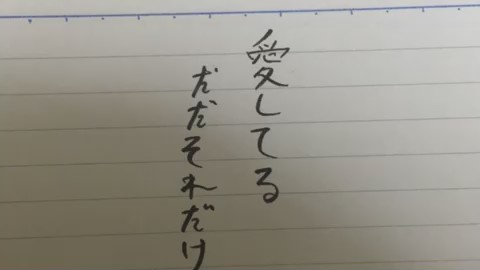 愛してる
だだそれだけ